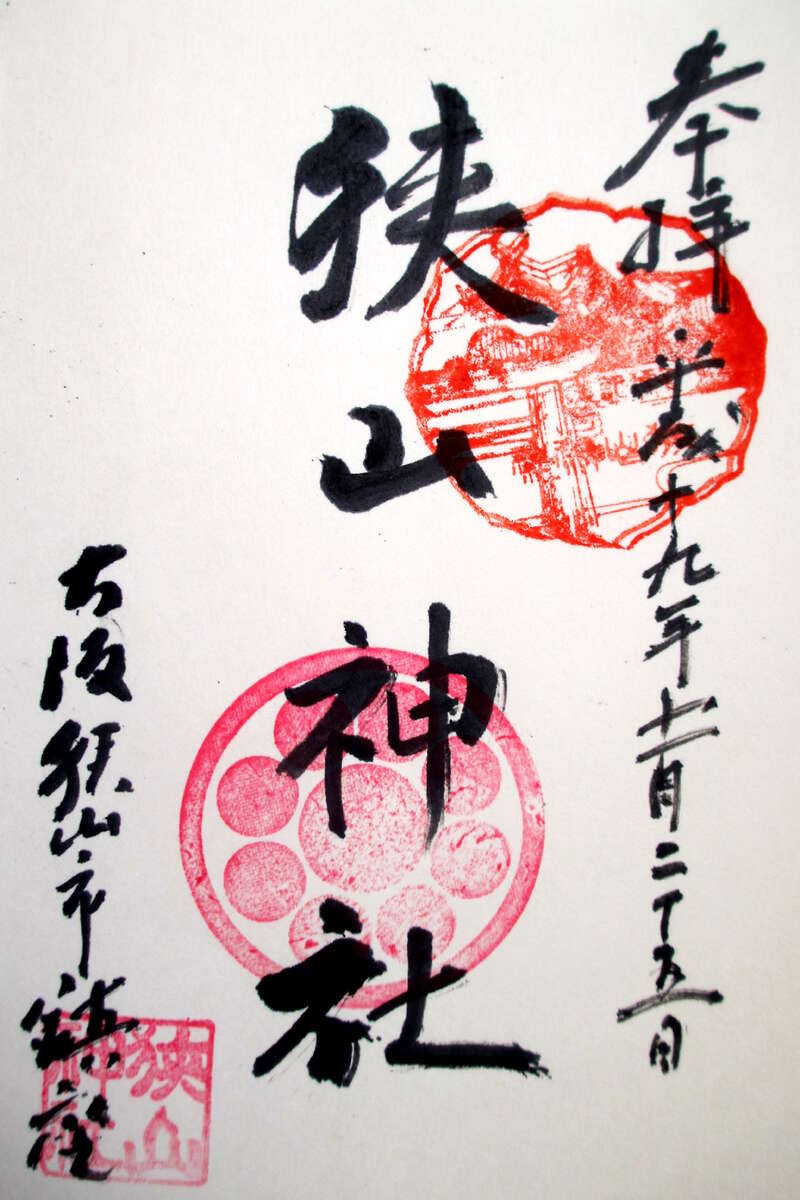 奉拝
平成十九年十一月二十五日
狭山神社
大阪狭山市鎮座
狭山神社